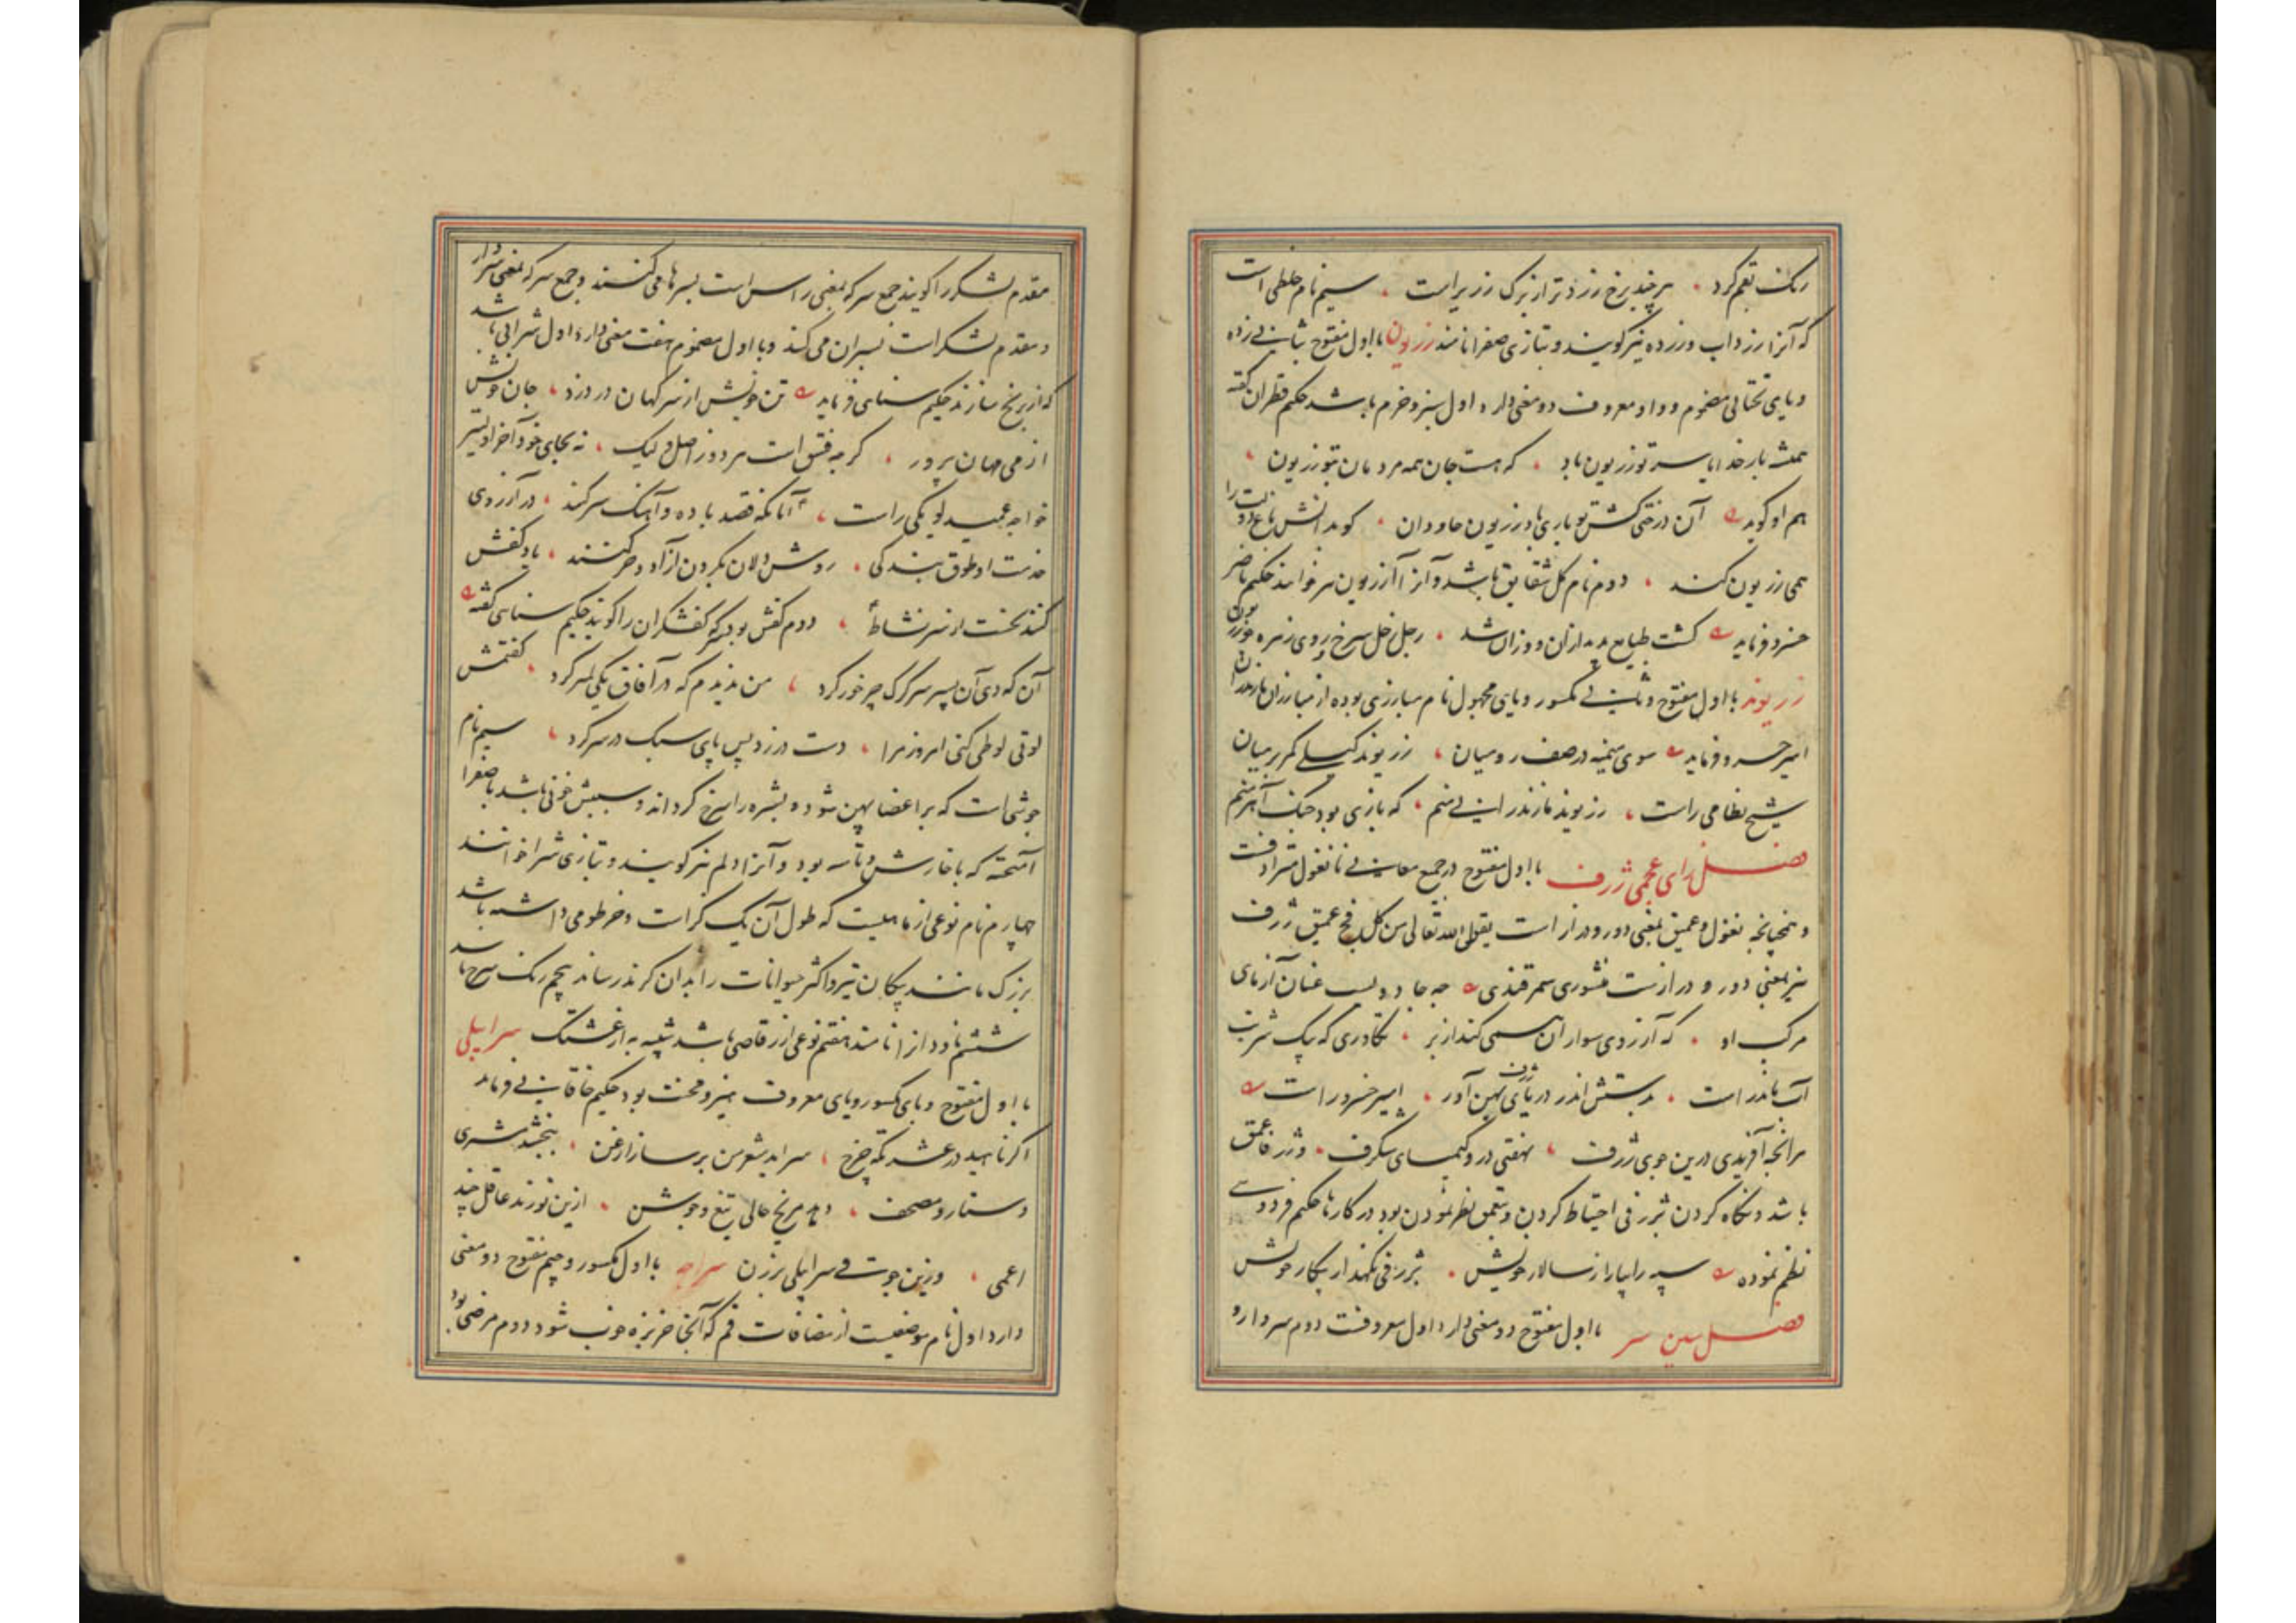 رنگ تقم کرد هر چند برخ زردتر از برگ زریر است سیم نام خلطی است
که آنرا زرداب و زرده نیز گویند و بتازی صفرا نامند زریون با اول مفتوح بثانی زده
و یای تحتانی مضموم و واو معروف دو معنی دارد اول سبز و خرم باشد حکیم قطران گفته
همیشه بار خدایا سر تو زریون باد که هست جان همه مردمان بتو زریون
هم او گوید آن درختی کشتن بو باری بادزریون جاودان
همی زریون کند دوم نام گل شقایق باشد و آنرا آزریون نیز خوانند حکیم ناصر
خسرو فرماید گشت طبایع پدید ازان و وزان شد رحل سرخ روی زهره
زریوند با اول مفتوح و ثانی مکسور و یای مجهول نام مبارزی بوده از مبارزان مازندران
امیر خسرو فرماید سوی میمنه در صف رومیان زریوند گیلی کمر بر میان
شیخ نظامی راست زریوند مازندرانی منم که بازی بود جنگ آهرمنم
فصل زای عجمی ژرف با اول مفتوح در جمیع معانی با نغول مترادفست
و همچنانچه نغول و عمیق بمعنی دور و دراز است بقوله الله تعالی من کل فج عمیق ژرف
نیز بمعنی دور و درازست منشوری سمرقندی چه جادویست عنان آزمای
مرکب او که آرزوی سواران همی کند از بر تکاوری که بیک شربت
آب ماند راست بدستش اندر دریای ژرف پهن آور امیر خسرو راست
هر آنچه آفریدی درین جوی ژرف نهفتی درو کیمیای شگرف و ژرفا عمق
باشد و نگاه کردن بژرفی احتیاط کردن و بتعمق نظر نمودن بود در کارها حکیم فردوسی
نظم نموده سپه را بیارای سالار خویش بژرفی نگهدار پیکار خویش
فصل سین سر با اول مفتوح دو معنی دارد اول معروفست دوم سردار و
مقدم لشکر را گویند جمع سر که بمعنی راس است بسرها می کنند و جمع سر که بمعنی سردار
و مقدم لشکر است بسران می کنند و با اول مضموم هفت معنی دارد اول شرابی باشد
که از برنج سازند حکیم سنایی فرماید تن خویش از سر کهان در دزد جان خویش
از می مهان پرور گرچه فتق است هر دو ز اصل ولیک نه بجای خود آخر اولیتر
خواجه عمید لویکی راست آنانکه قصد باده و آهنگ سر کنند در آرزوی
خدمت او طوق بندگی روشن دلان بگردن آزاد و حر کنند یاد کفش
کنند نخست از سر نشاط دوم کفش بود که کفشگران را گویند حکیم سنایی گفته
آن که دی آن پسر سرگرک چر خور کرد من ندیدم که در آفاق یکی لمتر کرد گفتمش
لوتی لوطی کنی امروز مرا دست در زد پس پای سبک در سر کرد سیم نام
جوششی است که بر اعضا پهن شود و بشره را سرخ گرداند و سببش خونی باشد با صفرا
آمیخته که با خارش و تاسه بود و آنرا دلم نیز گویند و بتازی شرا خوانند
چهارم نام نوعی از ماهیست که طول آن یک گز است و خرطومی داشته باشد
بزرگ مانند پیکان تیر و اکثر حیوانات را بدان گزند رساند پنجم رنگ سرخ باشد
ششم ناودان را نامند هفتم نوعی از رقاصی باشد شبیه به ارغشتک سراپلی
با اول مفتوح و بای مکسور و یای معروف هیز و مخنث بود حکیم خاقانی فرماید
اگر ناهید در عشرتگه چرخ سراید شعر من بر ساز ارغن ببخشد مشتری
دستار و مصحف دهد مریخ حالی تیغ و جوشن ازین نورند عاقل چند
اعمی وزین جوت فی سراپلی برزن سراجه با اول مکسور و جیم مفتوح دو معنی
دارد اول نام موضعیست از مضافات قم که آنجا خربزه خوب شود دوم مرضی بود